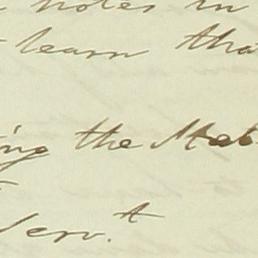 notes in
learn tha
ing the Met
Serv.t